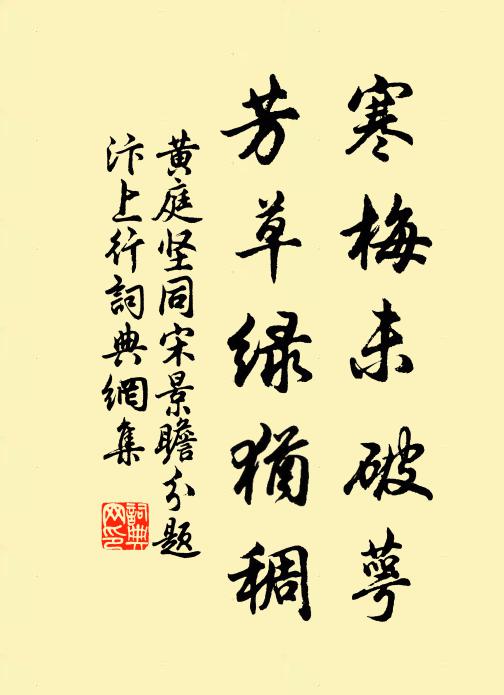 寒梅未破萼
芳草绿猶稠
黄庭坚同宋景瞻分题
汴上行詞典網集
詞典
网印